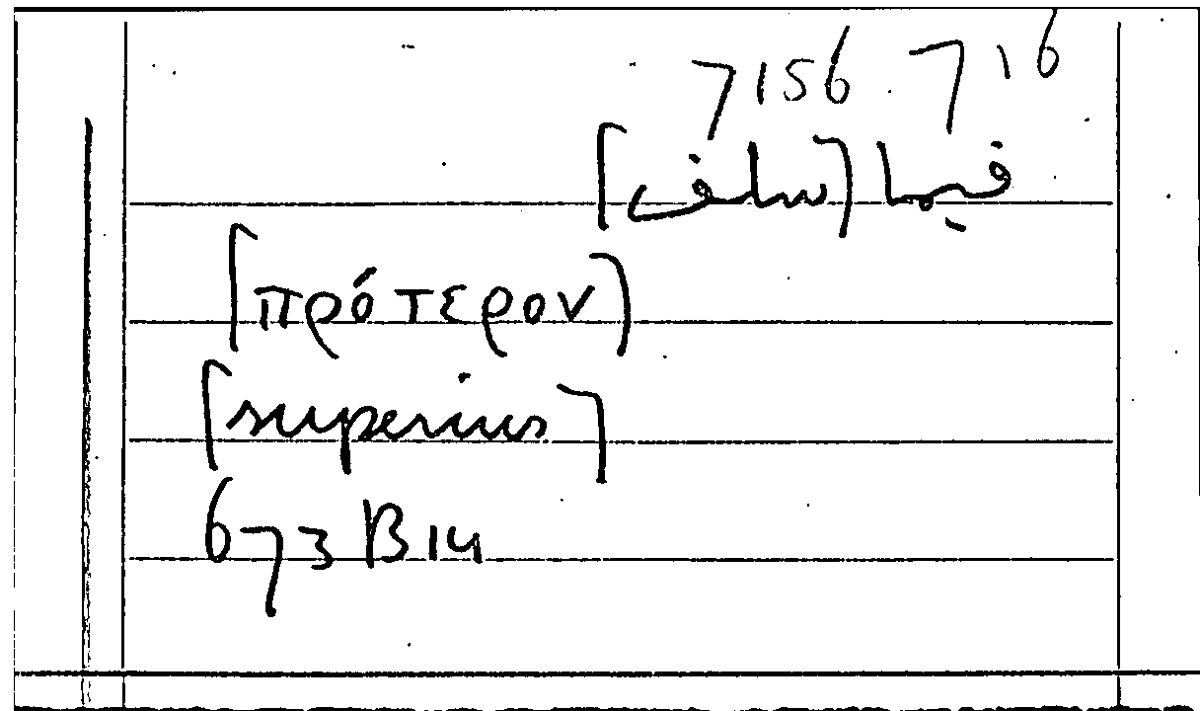 7156 716
فيما [سلف]
[πρότερον]
[superius]
673 B 14